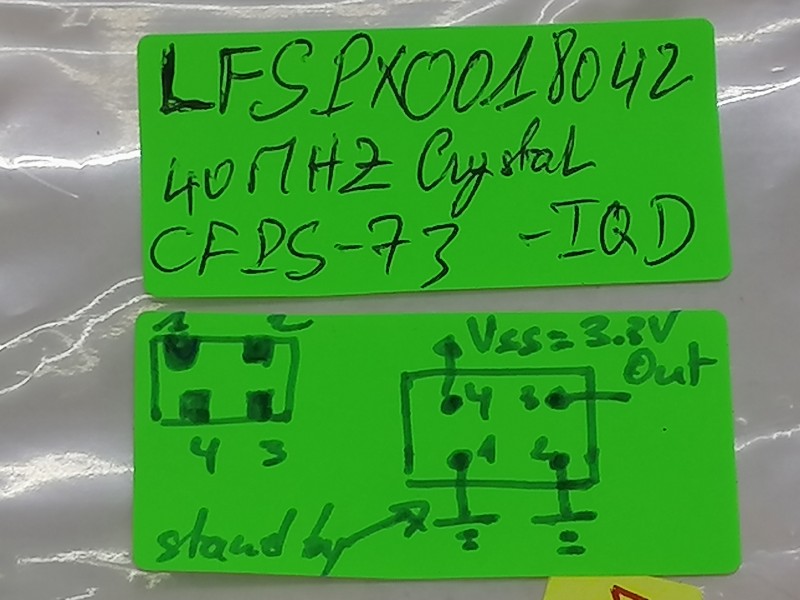 LFSPXO018042
40MHZ Crystal
CFPS-73 -IQD
1 2
4 3
Vss=3.3V
Out
4 3
1 2
stand by